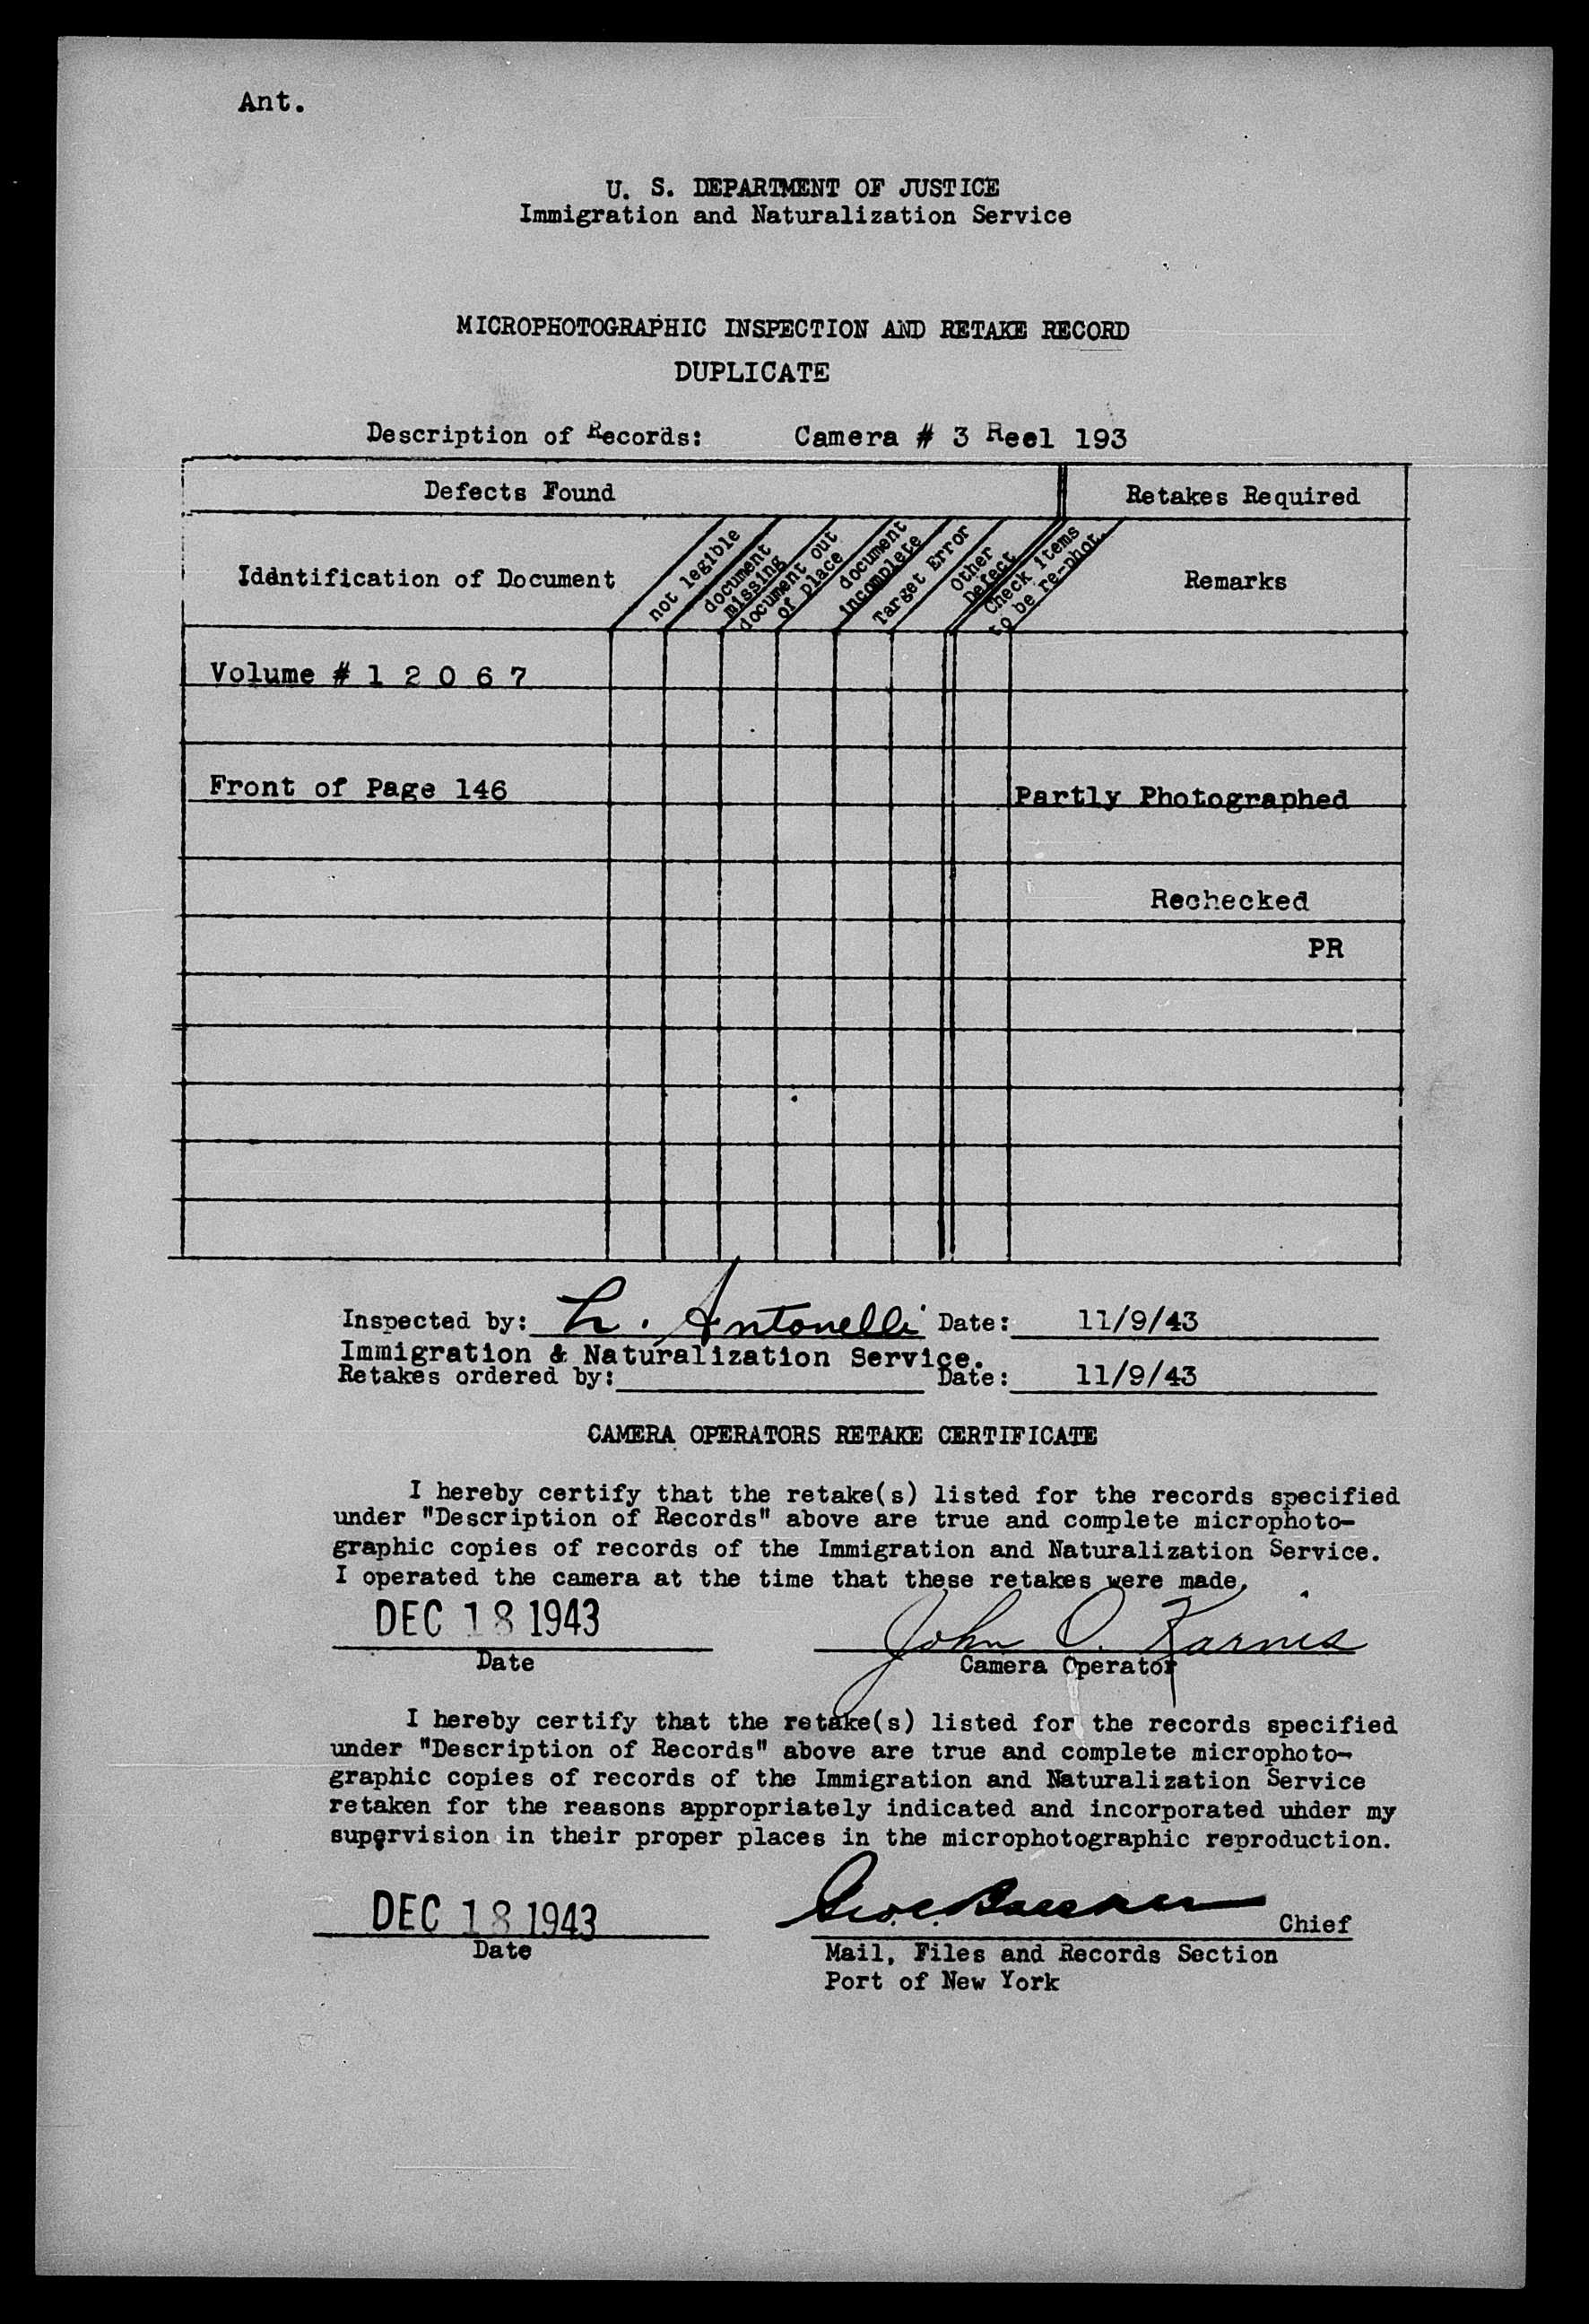 Ant.
U. S. DEPARTMENT OF JUSTICE
Immigration and Naturalization Service
MICROPHOTOGRAPHIC INSPECTION AND RETAKE RECORD
DUPLICATE
Description of Records: Camera # 3 Reel 193
Defects Found
Retakes Required
Idantification of Document
not legible
document
missing
document out
of place
document
incomplete
Target Error
Other
Defect
Check items
to be re-phot.
Remarks
Volume # 1 2 0 6 7
Front of Page 146
Partly Photographed
Rechecked
PR
Inspected by: L. Antonelli Date: 11/9/43
Immigration & Naturalization Service.
Retakes ordered by: Date: 11/9/43
CAMERA OPERATORS RETAKE CERTIFICATE
I hereby certify that the retake(s) listed for the records specified
under "Description of Records" above are true and complete microphoto-
graphic copies of records of the Immigration and Naturalization Service.
I operated the camera at the time that these retakes were made.
DEC 18 1943
John O. Karnis
Date
Camera Operator
I hereby certify that the retake(s) listed for the records specified
under "Description of Records" above are true and complete microphoto-
graphic copies of records of the Immigration and Naturalization Service
retaken for the reasons appropriately indicated and incorporated under my
supervision in their proper places in the microphotographic reproduction.
DEC 18 1943
Chief
Date
Mail, Files and Records Section
Port of New York